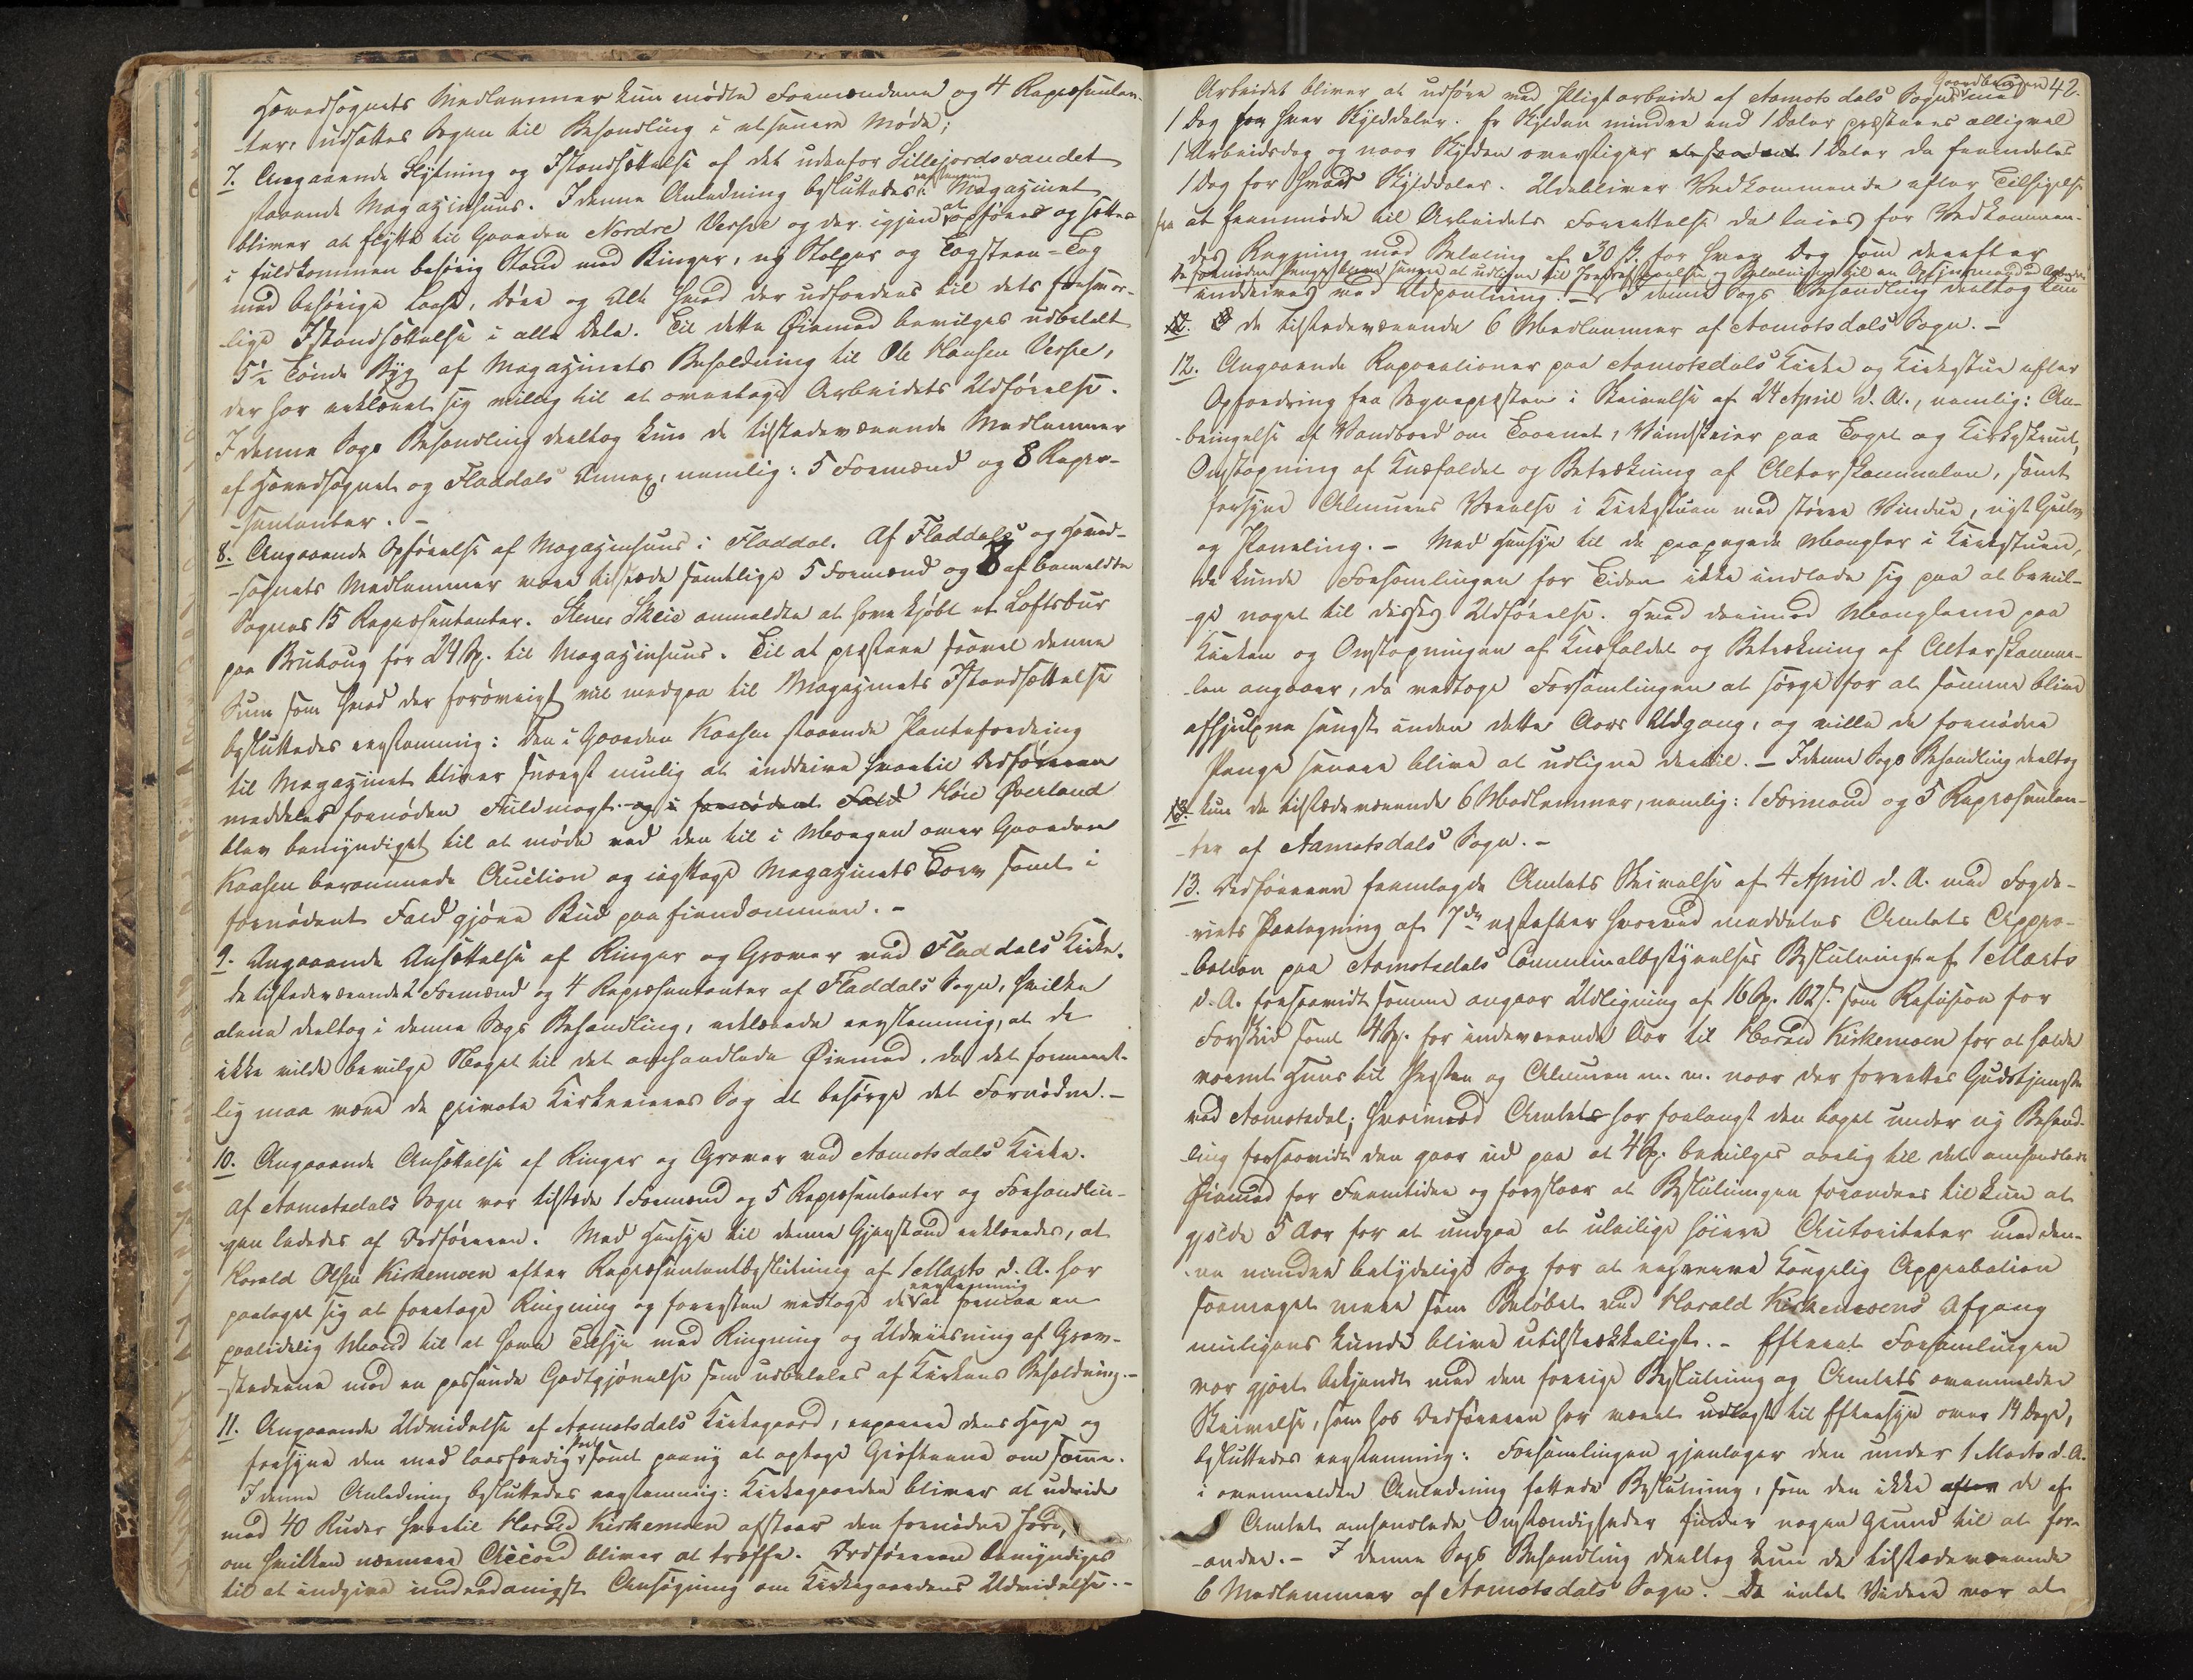 Hovedsognets Medlemmer kun mødte Formændene og 4 Repræsentan-
ter, udsattes Sagen til Behandling i et senere Møde;
7. Angaaende Flytning og Istandsættelse af det udenfor Sillejordsvandet
staaende Magazinhuus. I denne Anledning besluttedes eenstemmig: Magazinet
bliver at flytte til Gaarden Nordre Versje og der igjen at opføres og sættes
i fuldkommen behørig Stand med Ringer, ny Stolper og Tagsteen-Tag
med behørige Laase, Døre og Alt hvad der udfordres til dets forsvar-
lige Istandsættelse i alle Dele. Til dette Øiemed bevilges udbetalt
5½ Tønde Byg af Magazinets Beholdning til Ole Hansen Versje,
der har erklæret sig villig til at overtage Arbeidets Udførelse.
I denne Sags Behandling deeltog kun de tilstedeværende Medlemmer
af Hovedsognet og Fladdals Annex, nemlig: 5 Formænd og 8 Repræ-
sentanter. –
8. Angaaende Opførelse af Magazinhuus i Fladdal. Af Fladdals og Hoved-
sognets Medlemmer vare tilstede samtlige 5 Formænd og 8 af bemeldte
Sognes 15 Repræsentanter. Stener Skeie anmeldte at have kjøbt et Loftsbur
paa Bruhoug for 24 Sp. til Magazinhuus. Til at præstere saavel denne
Sum som hvad der forøvrigt vil medgaa til Magazinets Istandsættelse
besluttedes eenstemmig: den i Gaarden Kaasen staaende Pantefordring
til Magazinet bliver snarest mulig at inddrive hvortil Ordføreren
meddeles fornøden Fuldmagt og i fornødent Fald Høie Øverland
blev bemyndiget til at møde ved den til i Morgen over Gaarden
Kaasen berammede Auction og iagttage Magazinets Tarv samt i
fornødent Fald gjøre Bud paa Eiendommen. –
9. Angaaende Ansættelse af Ringer og Graver ved Fladdals Kirke.
de tilstedeværende 2 Formænd og 4 Repræsentanter af Fladdals Sogn, hvilke
alene deeltog i denne Sags Behandling, erklærede eenstemmig, at de
ikke vilde bevilge Noget til det omhandlede Øiemed, da det formeent-
lig maa være de private Kirkeeieres Sag at besørge det Fornødne. –
10. Angaaende Ansættelse af Ringer og Graver ved Aamotsdals Kirke.
Af Aamotsdals Sogn var tilstede 1 Formand og 5 Repræsentanter og Forhandlin-
gen lededes af Ordføreren. Med Hensyn til denne Gjenstand erklæredes, at
Harald Olsen Kirkemoen efter Repræsentantbeslutning af 1 Marts d. A. har
paataget sig at foretage Ringning og forresten vedtoges det eenstemmig at formaa en
paalidelig Mand til at have Tilsyn med Ringning og Udviisning af Grav-
stederne mod en passende Godtgjørelse som udbetales af Kirkens Beholdning. –
11. Angaaende Udvidelse af Aamotsdals Kirkegaard, reparere dens Hage og
forsyne den med laasfærdig Port samt paany at optage Grøfterne om samme.
I denne Anledning besluttedes eenstemmig: Kirkegaarden bliver at udvide
med 40 Ruder hvortil Harald Kirkemoen afstaar den fornødne Jord,
om hvilken nærmere Accord bliver at træffe. Ordføreren bemyndiges
til at indgive underdanigst Ansøgning om Kirkegaardens Udvidelse. –
42.
Arbeidet bliver at udføre med Pligtarbeide af Aamotsdals Sogns Gaardbrugere med
1 Dag fra hver Skylddaler. Er Skylden mindre end 1 Daler præsteres alligevel
1 Arbeidsdag og naar Skylden overstiger 1 Daler da fremdeles
1 Dag for hver Skylddaler. Udebliver Vedkommende efter Tilsigelse
fra at fremmøde til Arbeidets Forrettelse da leies for Vedkommen-
des Regning mod Betaling af 30 ß for hver Dag som derefter
De fornødne Penge bliver senere at udligne til Jordafstaaelsen og Betalningen til en Opsynsmand ved Arbeidet
inddrives med Udpantning. – I denne Sags Behandling deeltog kun
de tilstedeværende 6 Medlemmer af Aamotsdals Sogn. –
12. Angaaende Reparationer paa Aamotsdals Kirke og Kirkestue efter
Opfordring fra Sognepresten i Skrivelse af 24 April d. A., nemlig: An-
bringelse af Vandbord om Taarnet, Vindskeier paa Taget og Kirkeskruet,
Omstopning af Knæfaldet og Betrækning af Alterskammelen, samt
forsyne Almuens Værelse i Kirkestuen med større Vindue, nyt Gulv
og Paneling. – Med Hensyn til de paapegede Mangler i Kirkestuen,
da kunde Forsamlingen for Tiden ikke indlade sig paa at bevil-
ge noget til disses Udførelse. Hvad derimod Manglerne paa
Kirken og Omstopningen af Knæfaldet og Betrækning af Alterskamme-
len angaaer, da vedtoges Forsamlingen at sørge for at samme blive
afhjulpne længst inden dette Aars Udgang, og ville de fornødne
Penge senere blive at udligne dertil. – I denne Sags Behandling deeltog
kun de tilstedeværende 6 Medlemmer, nemlig: 1 Formand og 5 Repræsentan-
ter af Aamotsdals Sogn. –
13. Ordføreren fremlagde Amtets Skrivelse af 4 April d. A. med Fogde-
riets Paategning af 7de næstefter hvorved meddeles Amtets Appro-
bation paa Aamotsdals Communalbestyrelses Beslutning af 1 Marts
d. A. forsaavidt samme angaar Udligning af 16 Sp. 102 ß som Refusion for
Forskud samt 4 Sp. for indeværende Aar til Harald Kirkemoen for at holde
varmt Huus til Presten og Almuen m. m. naar der forrettes Gudstjeneste
ved Aamotsdal; hvorimod Amtet har forlangt den taget under ny Behand-
ling forsaavidt den gaar ud paa at 4 Sp. bevilges aarlig til det omhandlede
Øiemed for Fremtiden og foreslaar at Beslutningen forandres til kun at
gjælde 5 Aar for at undgaa at uleilige høiere Autoriteter med den-
ne mindre betydelige Sag for at erhverve Kongelig Approbation
saameget mere som Beløbet ved Harald Kirkemoens Afgang
muligens kunde blive utilstrækkeligt. – Efterat Forsamlingen
var gjort bekjendt med den forrige Beslutning og Amtets ovenmeldte
Skrivelse, som hos Ordføreren har været udlagt til Eftersyn over 14 Dage,
besluttedes eenstemmig: Forsamlingen gjentager den under 1 Marts d. A.
i ovenmeldte Anledning fattede Beslutning, som den ikke efter de af
Amtet omhandlede Omstændigheder finder nogen Grund til at for-
andre. – I denne Sags Behandling deeltog kun de tilstedeværende
6 Medlemmer af Aamotsdals Sogn. Da intet Videre var at